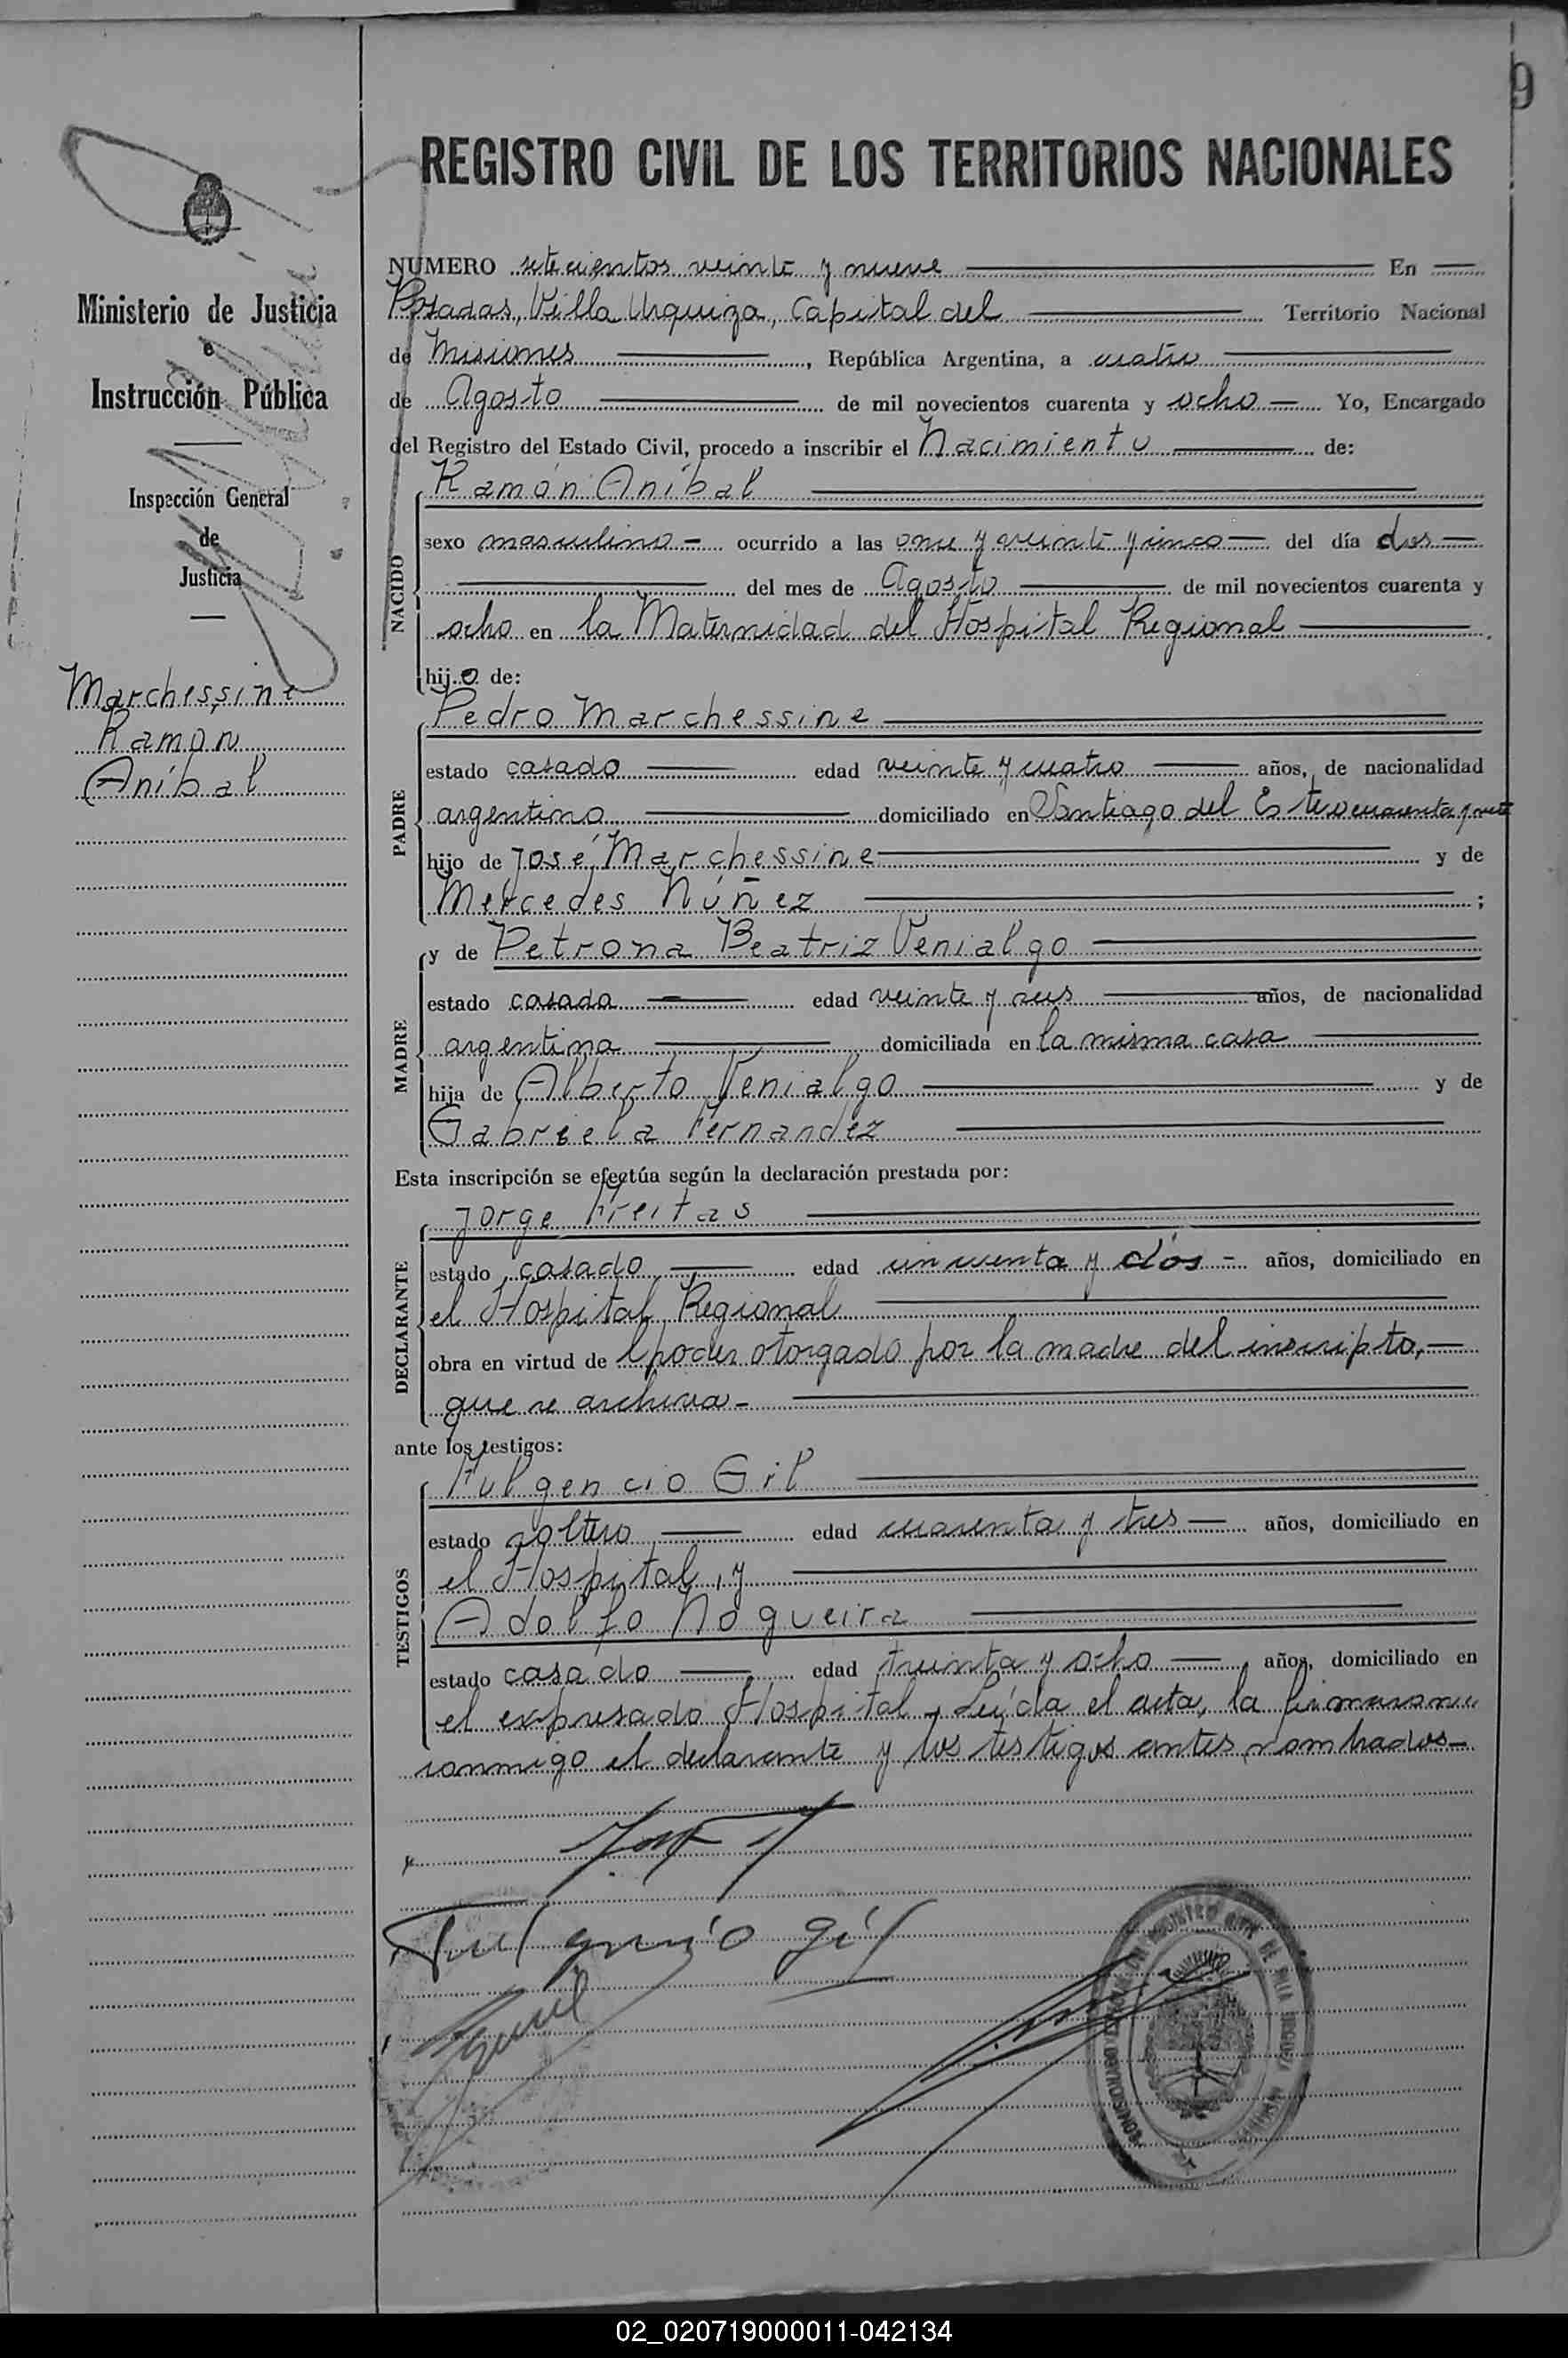 9
REGISTRO CIVIL DE LOS TERRITORIOS NACIONALES
Ministerio de Justicia
e
Instrucción Pública
Inspección General
de
Justicia
Marchessine
Ramón
Aníbal
NUMERO setecientos veinte y nueve En
Posadas, Villa Urquiza, Capital del Territorio Nacional
de Misiones, República Argentina, a cuatro
de Agosto de mil novecientos cuarenta y ocho Yo, Encargado
del Registro del Estado Civil, procedo a inscribir el Nacimiento de:
NACIDO
Ramón Aníbal
sexo masculino ocurrido a las once y veinte y cinco del día dos
del mes de Agosto de mil novecientos cuarenta y
ocho en la Maternidad del Hospital Regional
hijo de:
PADRE
Pedro Marchessine
estado casado edad veinte y cuatro años, de nacionalidad
argentino domiciliado en Santiago del Estero cuarenta y siete
hijo de José Marchessine y de
Mercedes Núñez ;
MADRE
y de Petrona Beatriz Venialgo
estado casada edad veinte y seis años, de nacionalidad
argentina domiciliada en la misma casa
hija de Alberto Venialgo y de
Gabriela Fernandez
Esta inscripción se efectúa según la declaración prestada por:
DECLARANTE
Jorge Freitas
estado casado edad cincuenta y dos - años, domiciliado en
el Hospital Regional
obra en virtud de l poder otorgado por la madre del inscripto,
que se archiva -
ante los testigos:
TESTIGOS
Fulgencio Gil
estado soltero edad cuarenta y tres años, domiciliado en
el Hospital, y
Adolfo Nogueira
estado casado edad treinta y ocho años, domiciliado en
el expresado Hospital. Leída el acta, la firmaron
conmigo el declarante y los testigos antes nombrados -
Fulgencio Gil
02_020719000011-042134